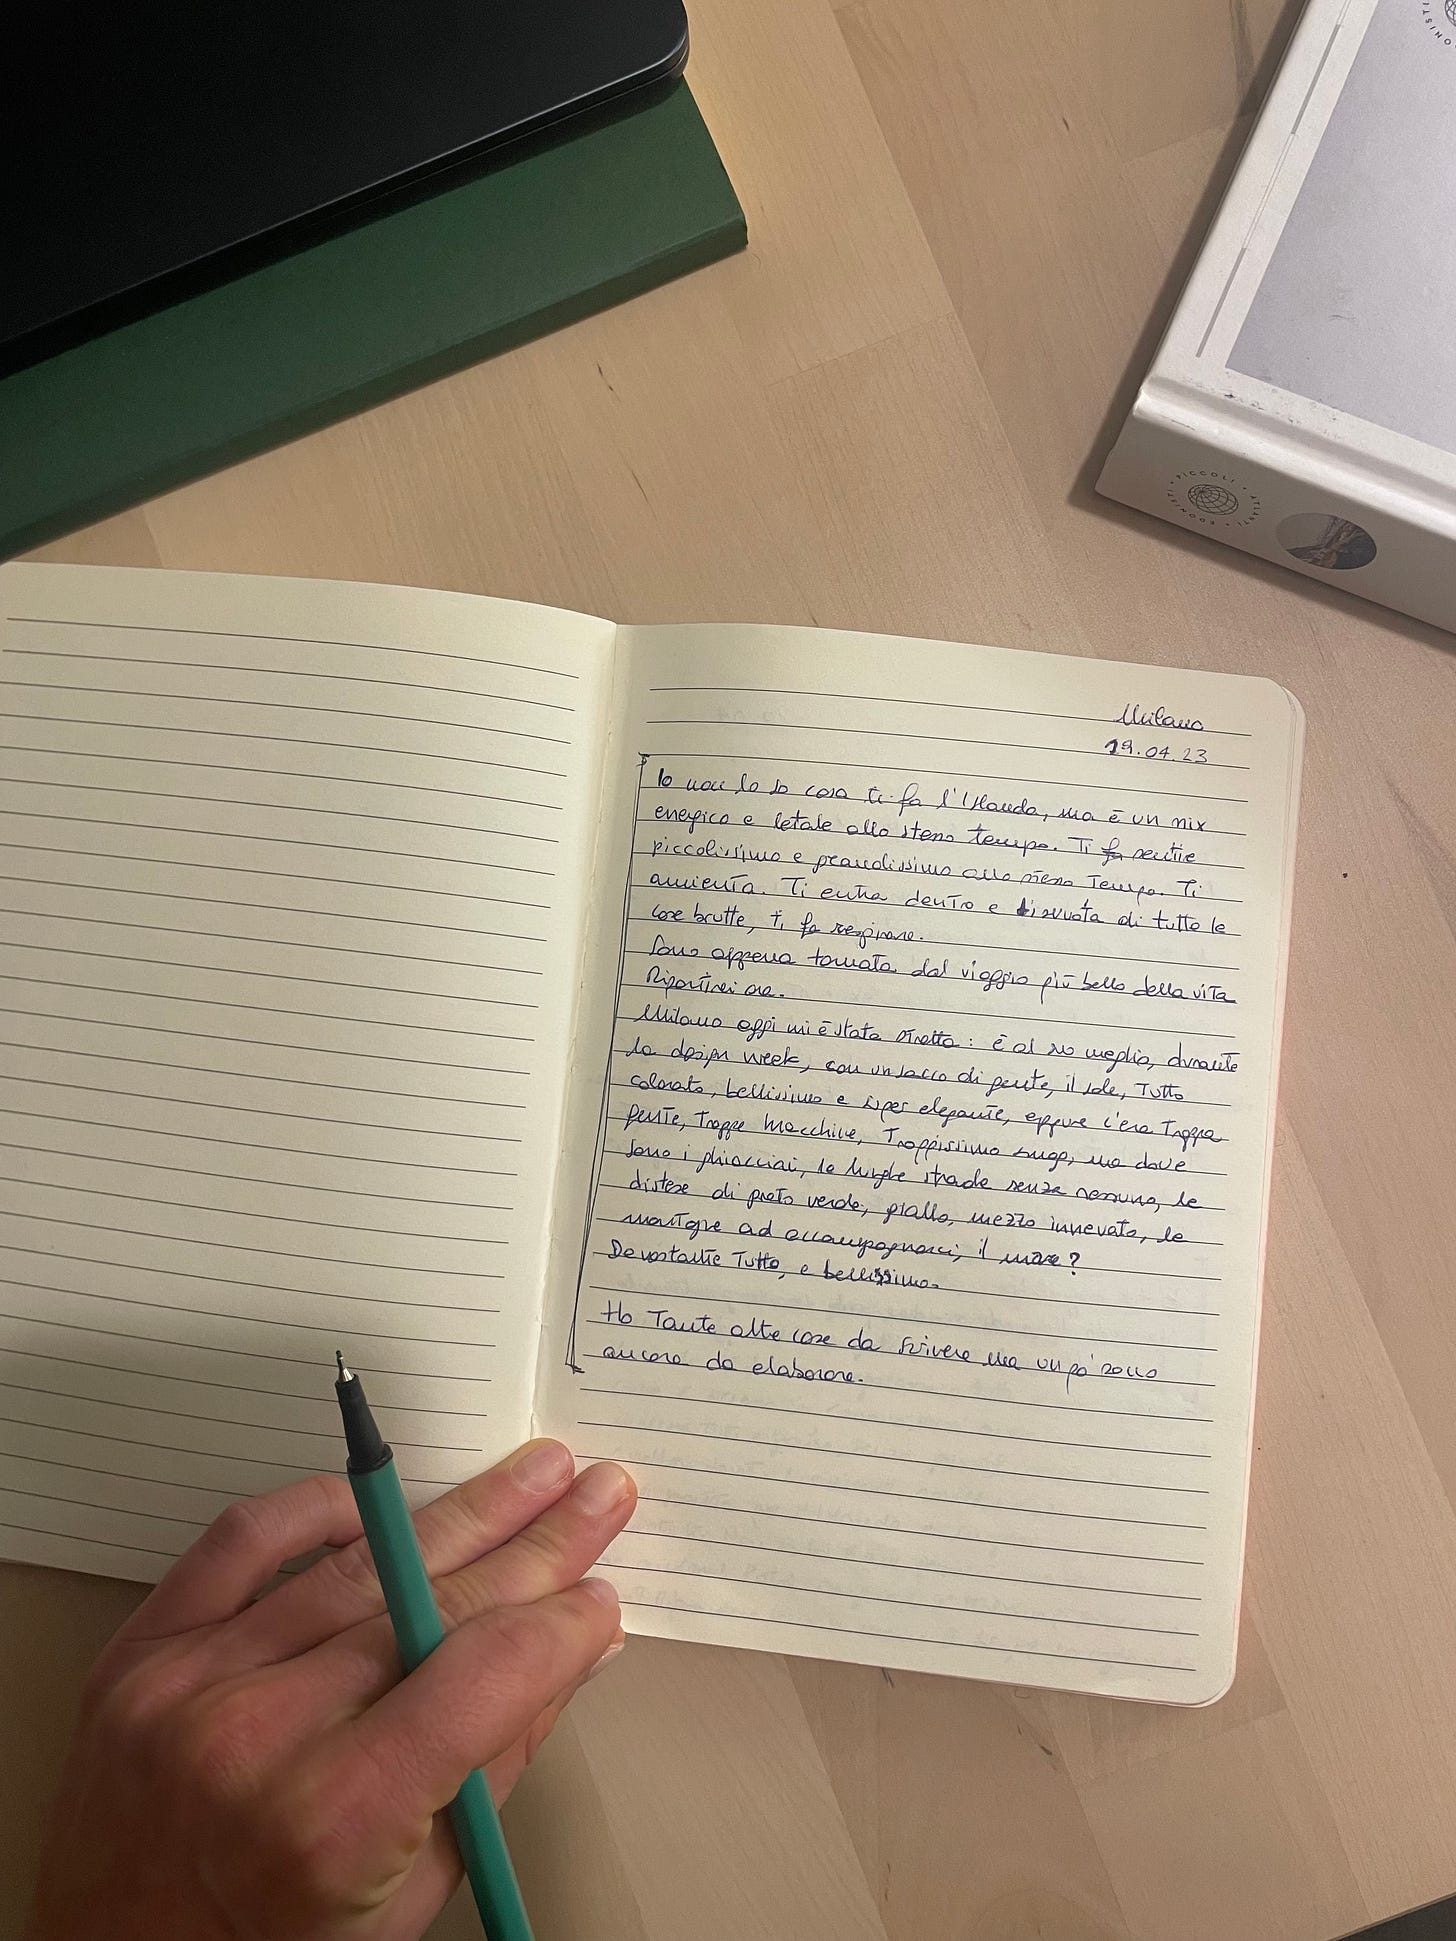 PICCOLI • ATLANTI • EDONISTI •
Milano
19.04.23
Io non lo so cosa ti fa l'Islanda, ma è un mix
energico e letale allo stesso tempo. Ti fa sentire
piccolissimo e grandissimo allo stesso tempo. Ti
annienta. Ti entra dentro e ti svuota di tutte le
cose brutte, ti fa respirare.
Sono appena tornata dal viaggio più bello della vita
Ripartirei ora.
Milano oggi mi è stata stretta: è al suo meglio, durante
la design week, con un sacco di gente, il sole, tutto
colorato, bellissimo e super elegante, eppure c'era troppa
gente, troppe macchine, troppissimo smog, ma dove
sono i ghiacciai, le lunghe strade senza nessuno, le
distese di prato verde, giallo, mezzo innevato, le
montagne ad accompagnarci, il mare?
Devastante tutto, e bellissimo.
Ho tante altre cose da scrivere ma un po' sono
ancora da elaborare.